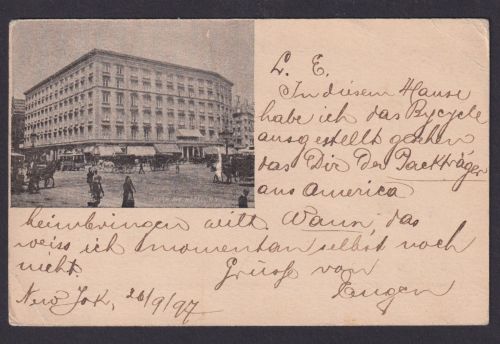 L. E.
In diesem Hause
habe ich das Bycycle
ausgestellt gesehen
das Dir der Packträger
aus America
heimbringen will. Wann, das
weiss ich momentan selbst noch
nicht.
Grüsse von
Eugen
New York, 26/9/97